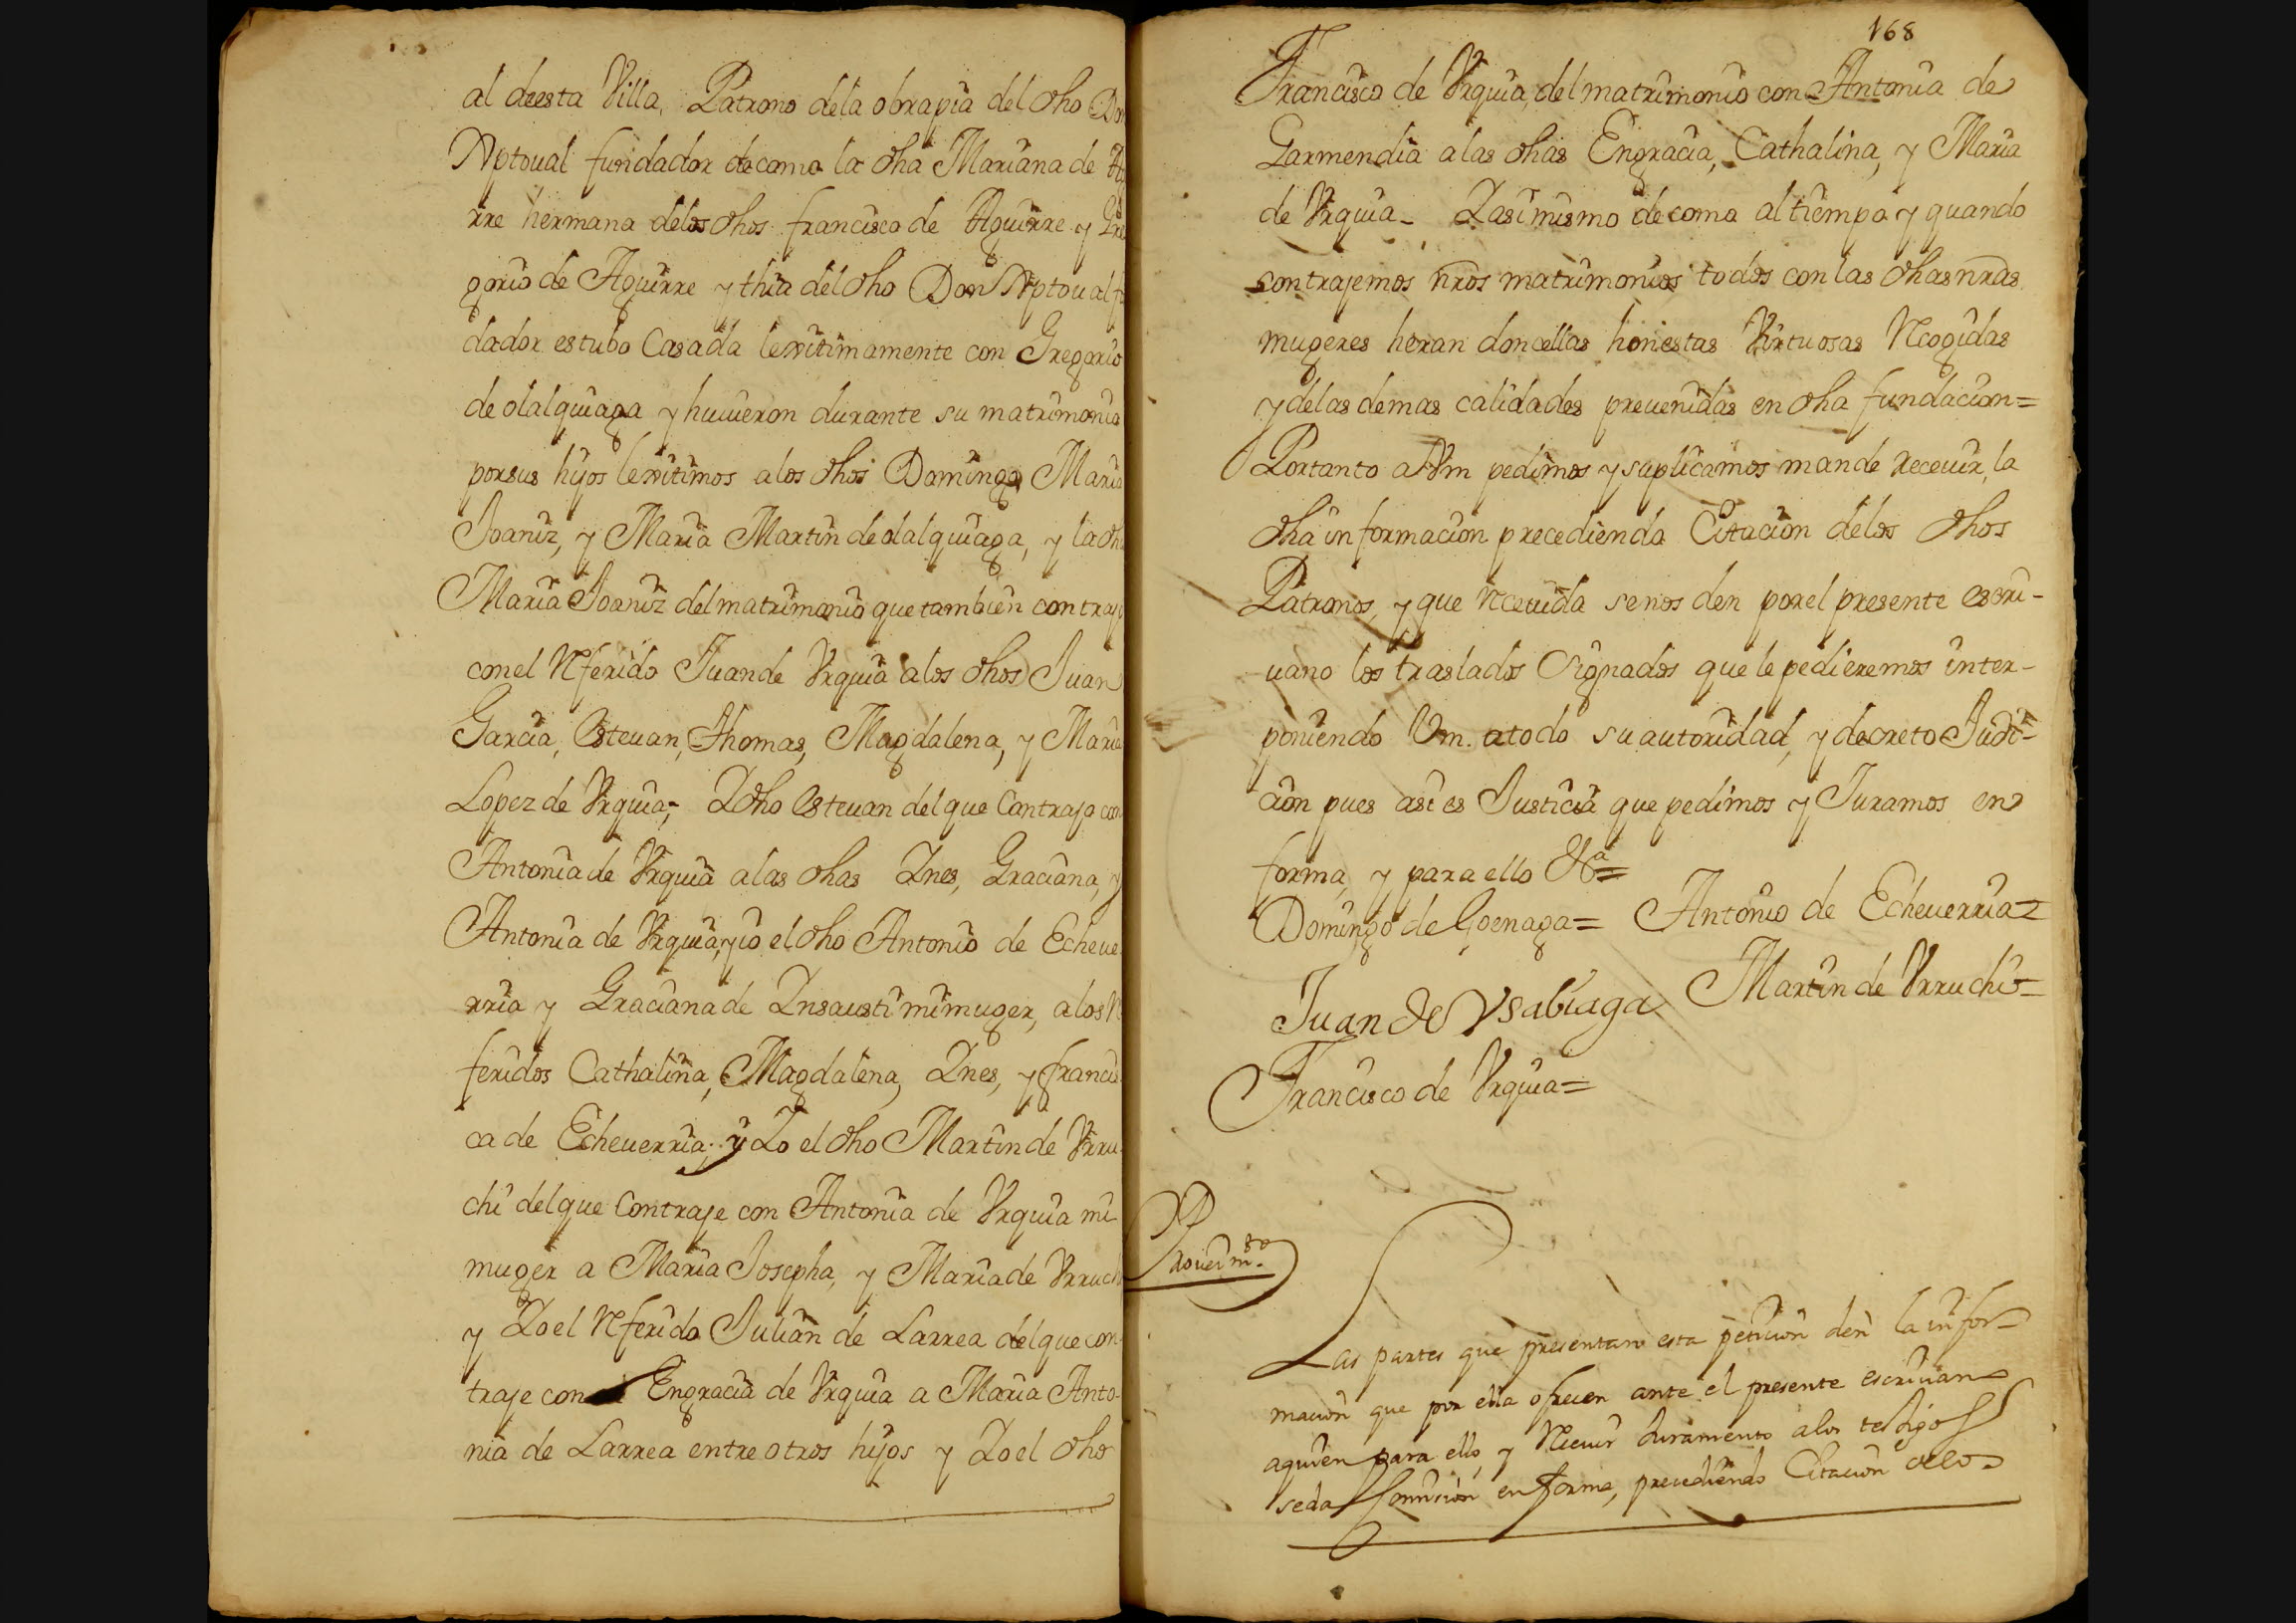 al deesta Villa, Patrono dela obrapia del dho Don
Xptoual fundador de como la dha Mariana de
rre hermana delos dhos francisco de Aguirre y Gre
gorio de Aguirre y thia del dho Don Xptoual
dador estubo Casada lexitimamente con Gregorio
de olalquiaga y huuieron durante su matrimonio
por sus hijos lexitimos alos dhos Domingo Maria
Joaniz, y Maria Martin de olalquiaga, y la dha
Maria Joaniz del matrimonio que tambien contrajo
con el Referido Juan de Vrquia alos dhos Juan
Garcia, Esteuan, Thomas, Magdalena, y Maria
Lopez de Vrquia; Y dho Esteuan del que Contrajo con
Antonia de Vrquia alas dhas Ynes, Graciana, y
Antonia de Vrquia, yio el dho Antonio de Echeue
rria y Graciana de Ynsausti mi muger, alos Re
feridos Cathalina, Magdalena, Ynes, y francis
ca de Echeuerria; y Yo el dho Martin de Vrru
chi del que Contraje con Antonia de Vrquia mi
muger a Maria Josepha, y Maria de Vrruchi
y Yo el Referido Julian de Larrea del que con
traje con Engracia de Vrquia a Maria Anto
nia de Larrea entre otros hijos y Yo el dho
168
Francisco de Vrquia, del matrimonio con Antonia de
Garmendia alas dhas Engracia, Cathalina, y Maria
de Vrquia - Y asi mismo de como al tiempo y quando
contrajemos nros matrimonios todos con las dhas nras
mugeres heran doncellas honestas Virtuosas Recogidas
y delas demas calidades preuenidas en dha fundacion =
Portanto a Vm pedimos y suplicamos mande receuir, la
dha informacion precediendo Citacion delos dhos
Patronos, y que Receuida senos den por el presente escri-
uano los traslados Signados que le pedieremos inter-
poniendo Vm. atodo su autoridad, y decreto Judi-
cion pues asi es Justicia que pedimos y Juramos en
forma, y para ello &a =
Domingo de Goenaga = Antonio de Echeuerria =
Juan de Ysabiaga Martin de Vrruchi =
Francisco de Vrquia =
Proueim.to
Las partes que presentaron esta peticion den la infor-
macion que por ella ofrecen ante el presente escriuano
aquien para ello, y Receuir Juramento alos testigos
seda Comision en forma, precediendo Citacion delo